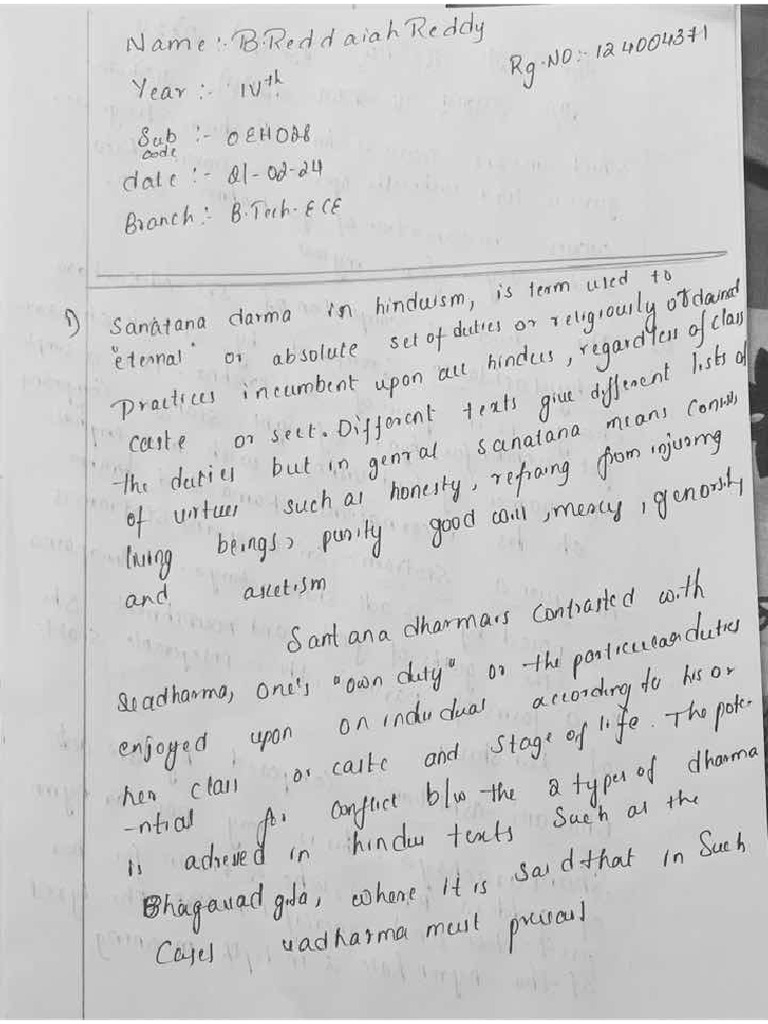 Name :- B.Reddaiah Reddy
Rg.NO:- 124004371
Year :- IVth
Sub code :- OEH028
date :- 21-02-24
Branch :- B.Tech. ECE
1) Sanatana darma in hinduism, is term used to
"eternal" or absolute set of duties or religiously ordained
Practices incumbent upon all hindus, regardless of class
caste or sect. Different texts give different lists of
the duties but in genral sanatana means consists
of virtues such as honesty, refraing from injurmg
living beings, purity good will, mercy, genorsity
and ascetism
Santana dharmais contrasted with
one's "own duty" or the particulear duties
enjoyed upon on individual according to his or
her class or caste and stage of life. The pote-
-ntial for conflict b/w the 2 types of dharma
is acheived in hindu texts Such as the
Bhagavad gita, where it is said that in Such
Cases vadharma must